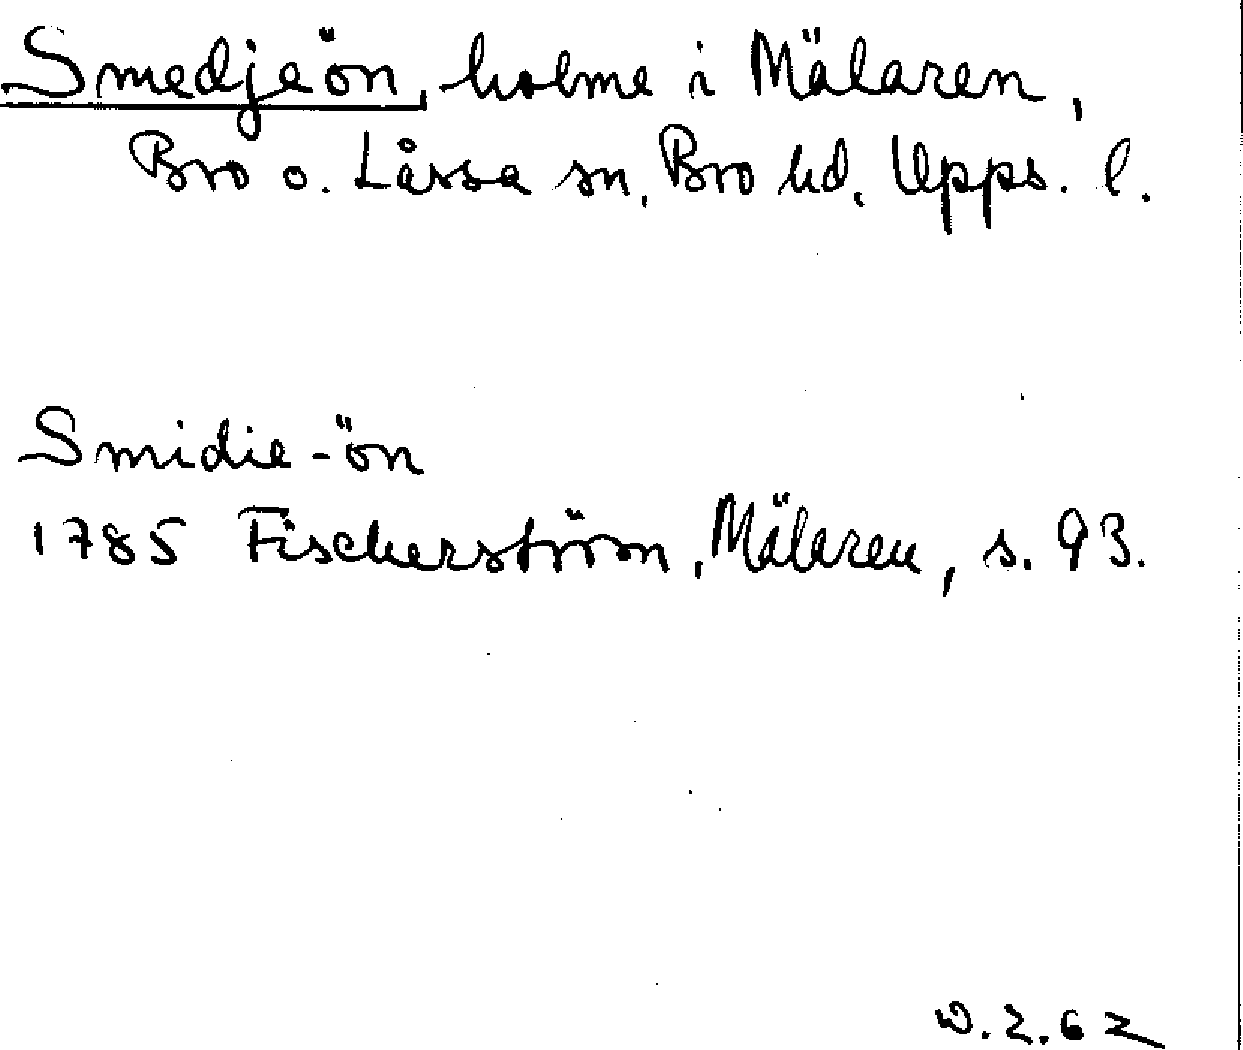 Smedjeön, holme i Mälaren,
Bro o. Låssa sn, Bro hd, Upps. l.
Smidie-ön
1785 Fischerström, Mälaren, s. 93.
W.2.62